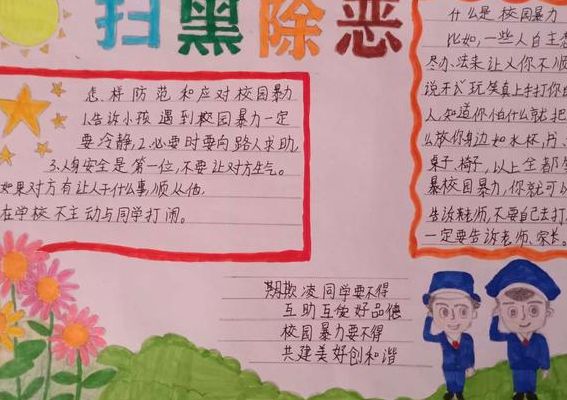 扫黑除恶
怎样防范和应对校园暴力
1.告诉小孩遇到校园暴力一定
要冷静,2.必要时要向路人求助,
3.人身安全是第一位,不要让对方生气。
如果对方有让人干什么事,顺从他,
在学校不主动与同学打闹。
什么是校园暴力
比如,一些人自主想
尽办法来让人你不顺
说开公玩笑真上手打你的
人,知道你怕什么就把
么放你身边如水杯,
桌子、椅子,以上全都
暴校园暴力,你就可以
告诉老师,不要自己去打
一定要告诉老师、家长。
期欺凌同学要不得
互助互爱好品德
校园暴力要不得
共建美好创和谐